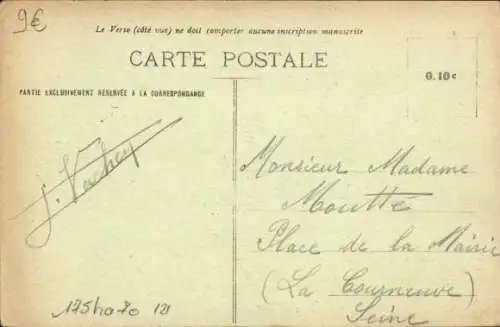 9€
Le Verso (côté vue) ne doit comporter aucune inscription manuscrite
CARTE POSTALE
0.10c
PARTIE EXCLUSIVEMENT RÉSERVÉE A LA CORRESPONDANCE
J. Vachey
Monsieur Madame
Moutté
Place de la Mairie
(La Courneuve)
Seine
175h070 121